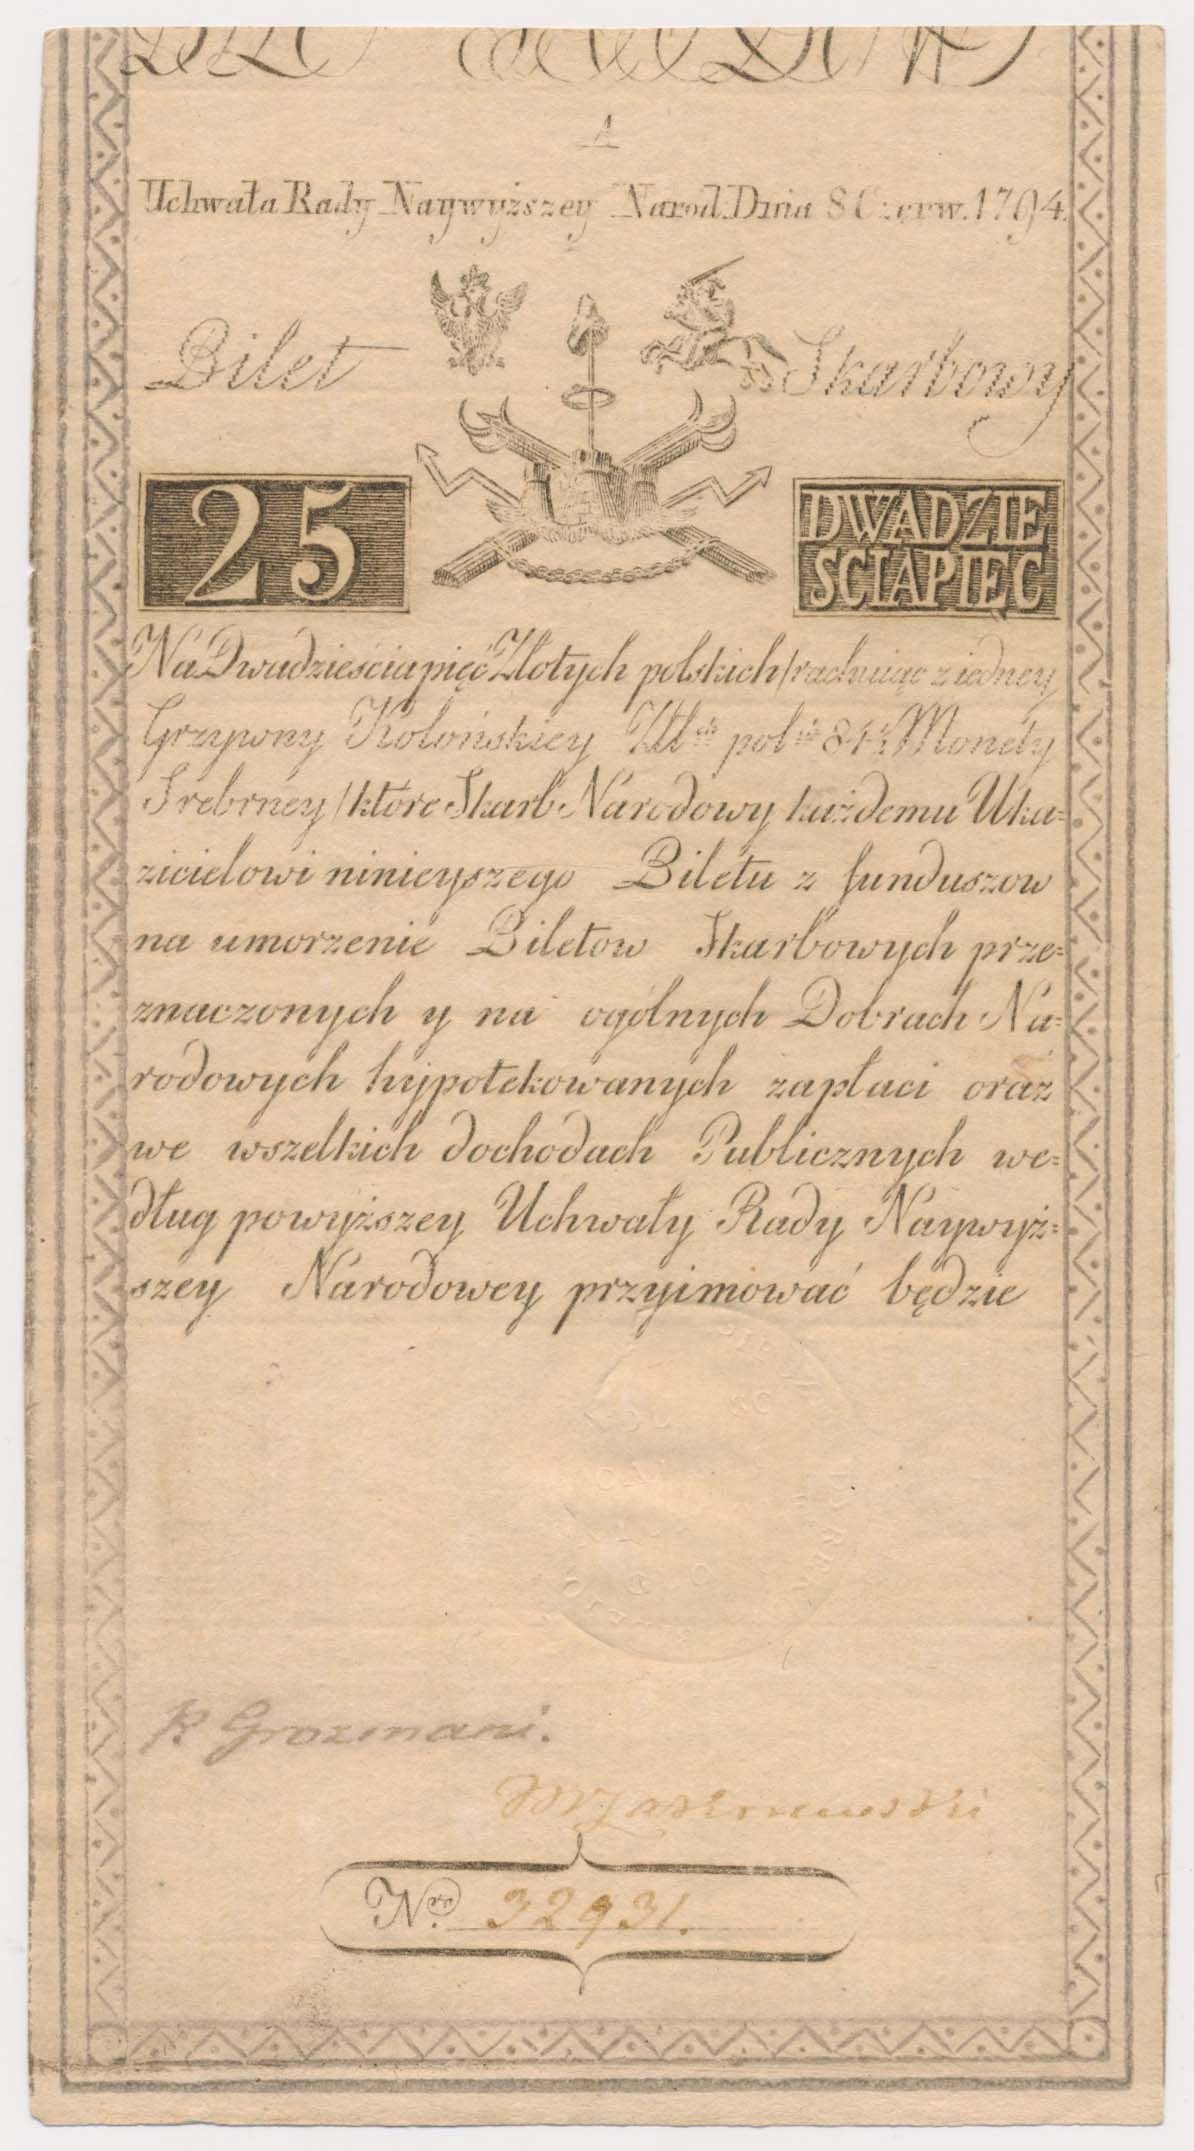 A
Uchwała Rady Naywyższey Narod. Dnia 8 Czerw. 1794.
Bilet Skarbowy
25 DWADZIE
ŚCIAPIĘĆ
Na Dwadzieściapięć Złotych polskich /rachuiąc z iedney
Grzywny Kolońskiey Zł. ch pol. ch 84½ Monety
Srebrney/ które Skarb Narodowy każdemu Uka=
zicielowi ninieyszego Biletu z funduszow
na umorzenie Biletow Skarbowych prze=
znaczonych y na ogólnych Dobrach Na=
rodowych hypotekowanych zapłaci oraz
we wszelkich dochodach Publicznych we=
dług powyższey Uchwały Rady Naywyż=
szey Narodowey przyimować będzie
Grozmani.
Nro. 32931.